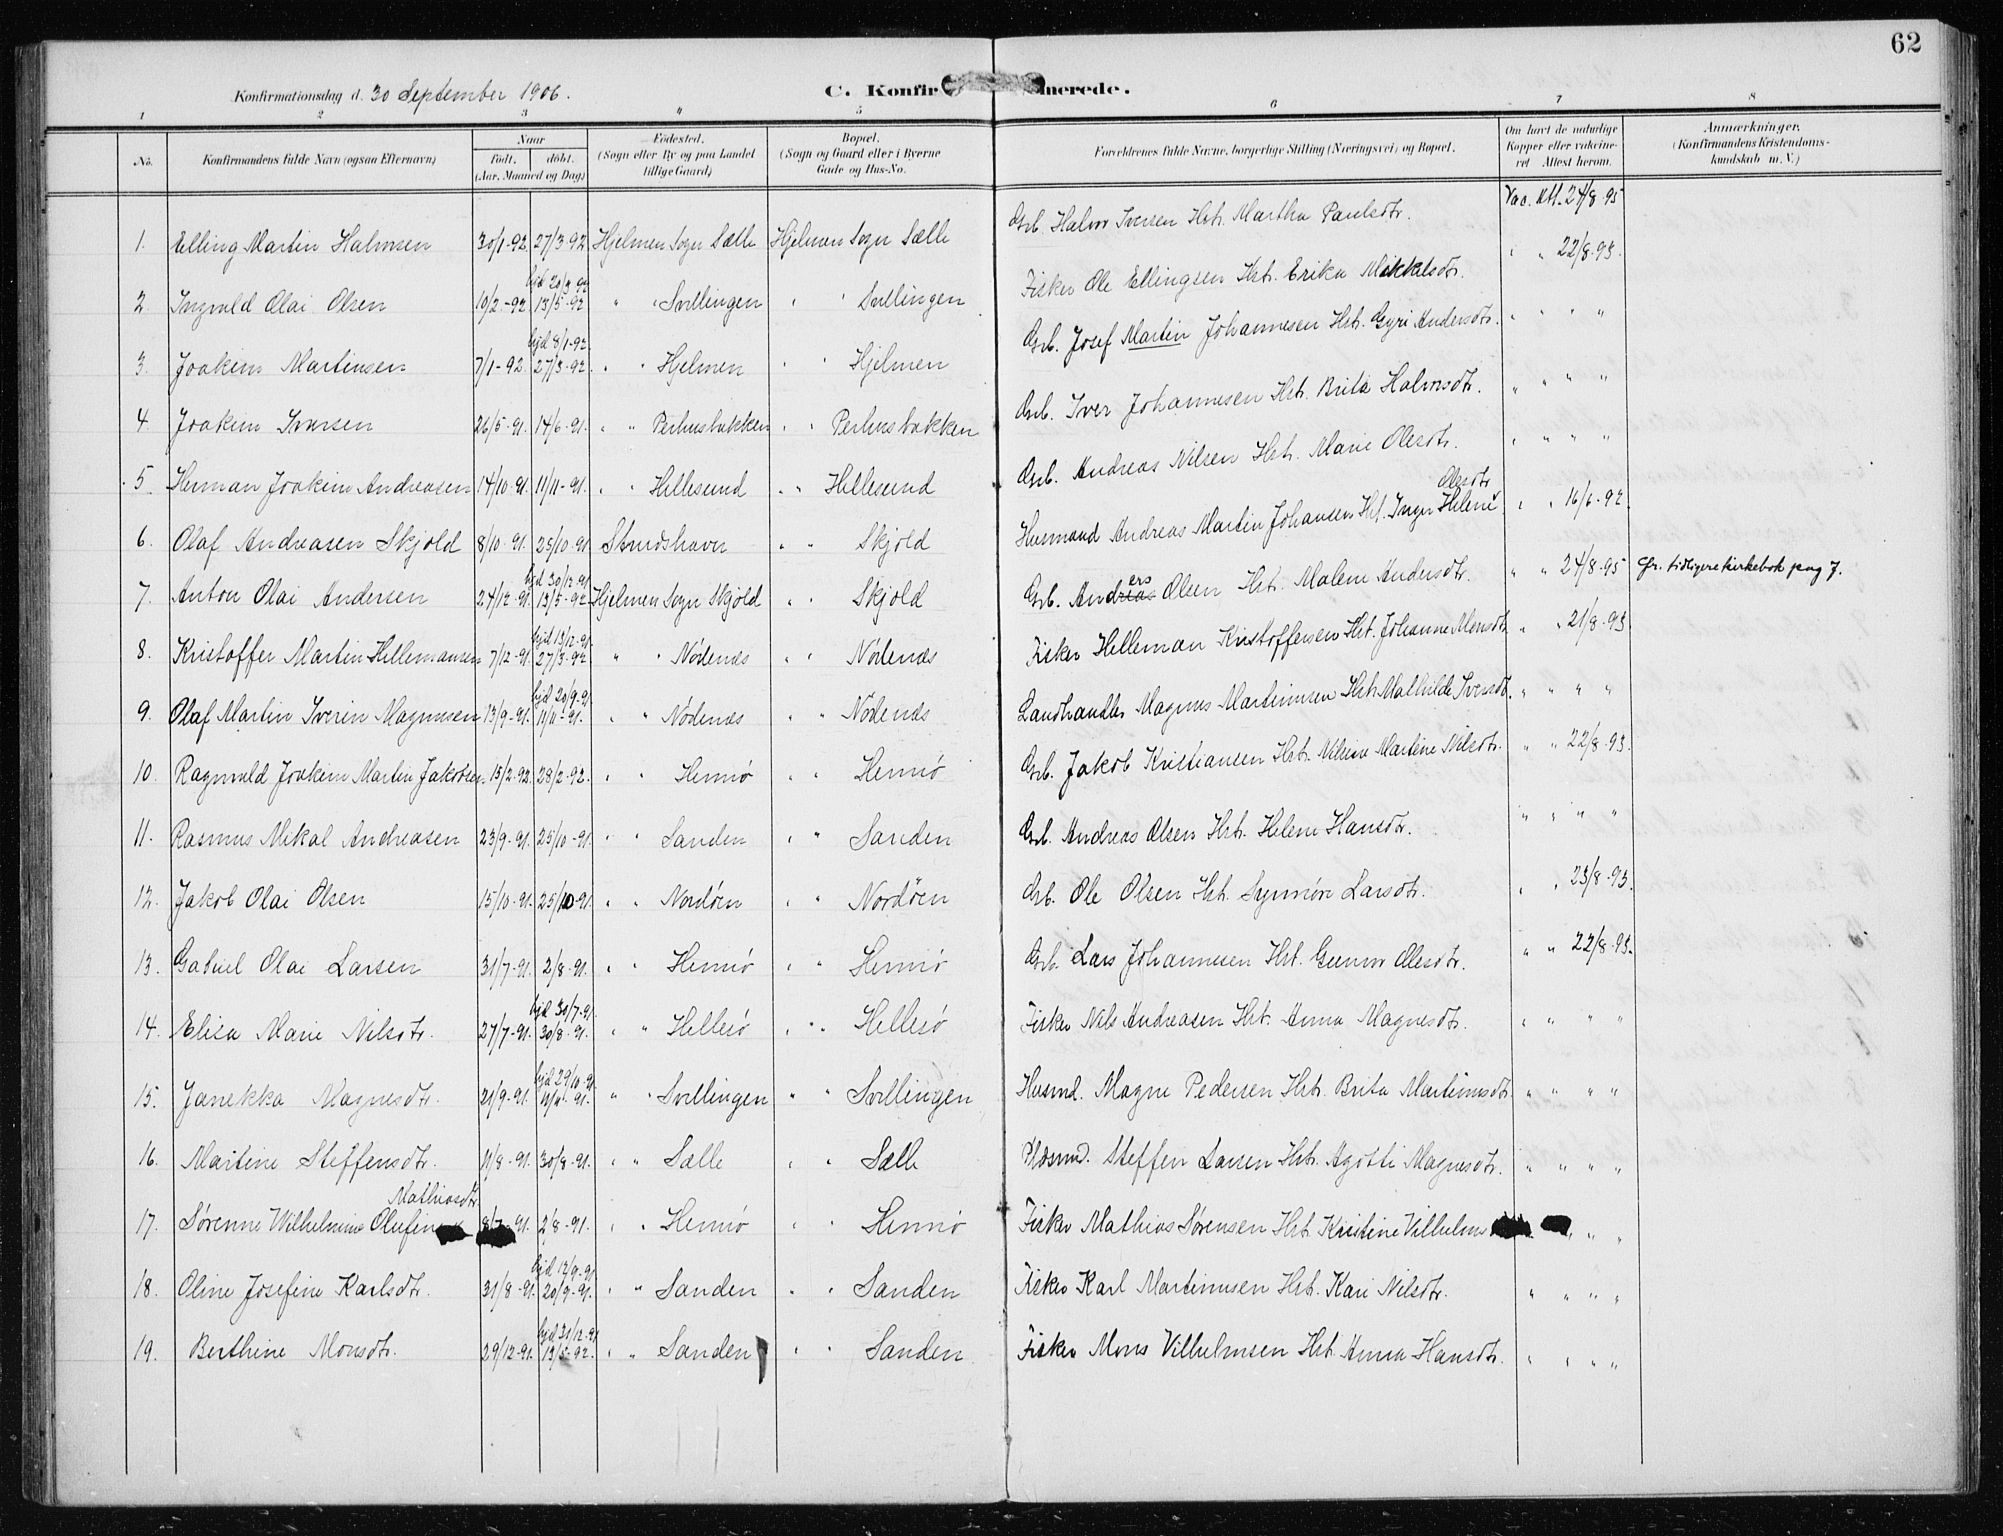 62
Konfirmationsdag d. 30 September 1906.
C. Konfirmerede.
1 2 3 4 5 6 7 8
No. Konfirmandens fulde Navn (ogsaa Efternavn) Naar født. døbt. (Aar, Maaned og Dag) Fødested. (Sogn eller By og paa Landet tillige Gaard) Bopæl. (Sogn og Gaard eller i Byerne Gade og Hus-No. Forældrenes fulde Navne, borgerlige Stilling (Næringsvei) og Bopæl. Om havt de naturlige Kopper eller vaccineret Attest herom. Anmærkninger. (Konfirmandens Kristendomskundskab m. V.)
1. Elling Martin Halvorsen 30/1-92. 27/3-92 Hjelmen Sogn Sælle Hjelmen Sogn Sælle Grb. Halvor Iversen Hst. Martha Paulsdtr. Vac. Att. 24/8-95
2 Ingvald Olai Olsen 10/2-92 hjd 20/3 92 13/5-92 " " Svellingen " " Svellingen Fisker Ole Ellingsen Hst. Erika Mikkelsdtr. " " 22/8-93.
3. Joakim Martinsen 7/1-92. hjd 8/1-92. 27/3-92. " " Hjelmen " " Hjelmen Grb. Josef Martin Johannesen Hst. Gyri Andersdtr. " " " "
4. Joakim Iversen 26/5-91. 14/6-91. " " Perhusbakken " " Perhusbakken Grb. Iver Johannesen Hst. Brita Halvorsdtr. " " " "
5. Herman Joakim Andreasen 14/10-91. 11/11-91. " " Hellesund " " Hellesund Grb. Andreas Nilsen Hst. Marie Olesdtr. " " " "
6. Olaf Andreasen Skjold 8/10-91. 25/10-91 Strudshavn " " Skjold Husmand Andreas Martin Johansen Hst. Inger Helene Olesdtr " " 16/6-92.
7. Anton Olai Andersen 24/12-91 hjd 30/12-91 13/5-92 Hjelmen Sogn Skjold " " Skjold Grb. Andreas ers Olsen Hst. Malene Andersdtr. " " 24/8-95 Gr. tidligere kirkebok pag 7.
8. Kristoffer Martin Hellemansen 7/12-91. hjd 13/12-91. 27/3-92 " " Nødenæs " " Nødenæs Fisker Helleman Kristoffersen Hst. Johanne Monsdtr " " 21/8-93
9. Olaf Martin Iverin Magnusen 13/9-91. hjd 20/9-91 11/11-91. " " Nødenæs " " Nødenæs Landhandler Magnus Martinusen Hst. Mathilde Iversdtr. " " " "
10. Ragnvald Joakim Martin Jakobsen. 15/2-92. 28/2-92. " " Hennø " " Hennø Grb. Jakob Kristiansen Hst. Nilsine Martine Nilsdtr. " " 22/8-93.
11. Rasmus Mikal Andreasen 23/9-91. 25/10-91. " " Sanden " " Sanden Grb. Andreas Olsen Hst. Helene Hansdtr. " " " "
12. Jakob Olai Olsen 15/10-91. 25/10-91. " " Nordøen " " Nordøen Grb. Ole Olsen Hst. Synnøve Larsdtr. " " 23/8-93.
13. Gabriel Olai Larsen 31/7-91. 2/8-91. " " Hennø " " Hennø Grb. Lars Johannesen Hst. Gunnor Olesdtr. " " 22/8-93.
14. Elisa Marie Nilsdtr. 27/7-91. hjd 30/7-91 30/8-91. " " Hellesø " " Hellesø Fisker Nils Andreasen Hst. Anna Magnesdtr. " " " "
15. Janekka Magnesdtr. 21/9-91. hjd 29/10-91 11/11-91. " " Svellingen " " Svellingen Husmd. Magne Pedersen Hst. Brita Martinusdtr. " " " "
16. Martine Steffensdtr. 11/8-91. 30/8-91. " " Sælle " " Sælle Steffen Larsen Hst. Agotte Magnesdtr. " " " "
17. Sørenne Wilhelmine Olufine Mathiasdtr 8/7-91. 2/8-91. " " Hennø " " Hennø Fisker Mathias Sørensen Hst. Kristine Vilhelms " "
18. Oline Josefine Karlsdtr. 31/8-91. hjd 12/9-91 20/9-91. " " Sanden " " Sanden Fisker Karl Martinusen Hst. Kari Nilsdtr. " " " "
19. Berthine Monsdtr. 29/12-91. hjd 31/12-91 13/5-92. " " Sanden " " Sanden Fisker Mons Vilhelmsen Hst. Anna Hansdtr. " " " "